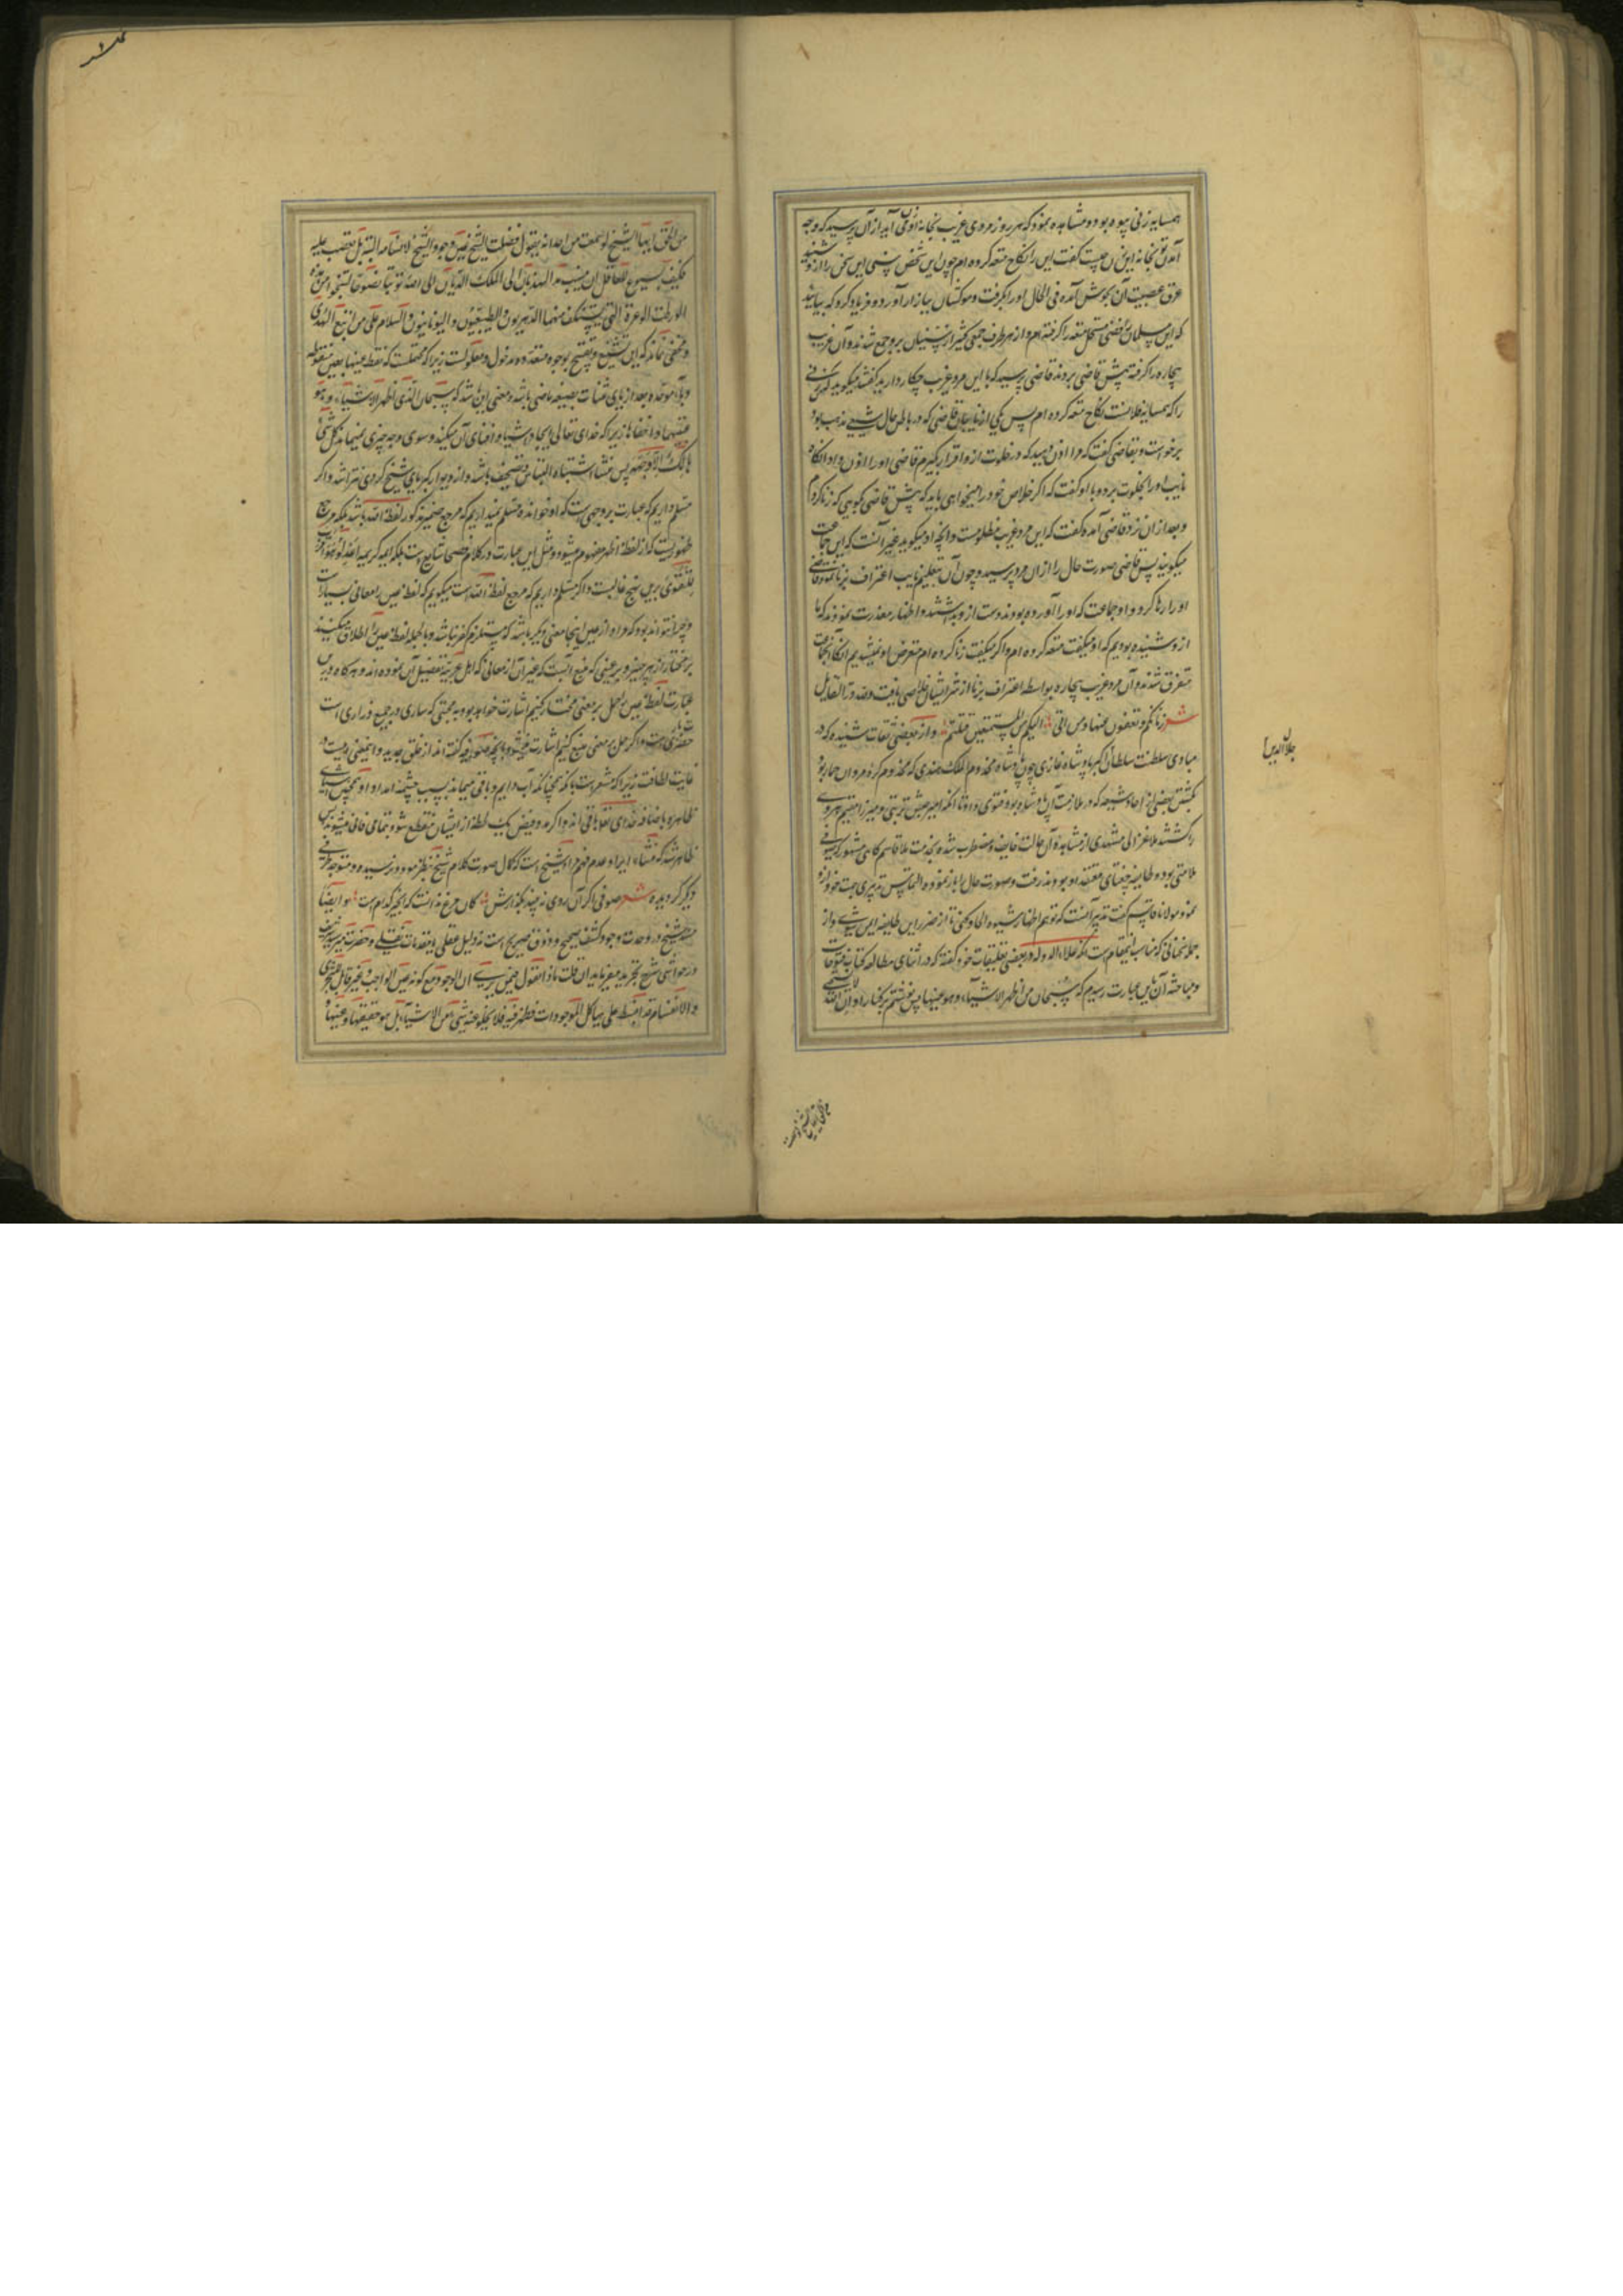 همسایه زنی بیوه بود و مشاهده نمود که هر روز مردی غریب بخانه او می آید از آن پرسید که وجه
آمدن تو بخانه این زن چیست گفت این را نکاح متعه کرده ام چون این شخص سنی این سخن را ازو شنید
عرق عصبیت آن بجوش آمده فی الحال او را بگرفت و موکشان ببازار آورد و فریاد کرد که بیایید
که این مسلمان رافضی مستحل متعه را گرفته ام و از هر طرف جمعی کثیر از سنیان برو جمع شدند و آن غریب
بیچاره را گرفته پیش قاضی بردند قاضی پرسید که با این مرد غریب چکار دارید گفتند میگوید که زنی
را که همسایه فلانست نکاح متعه کرده ام پس یکی از نایبان قاضی که در باطن حال شیعی مذهب بود
برخواست و بقاضی گفت که مرا اذن دهید که در خلوت ازو اقرار بگیرم قاضی او را اذن داد آنگاه
نایب او را بخلوت برد و با او گفت که اگر خلاص خود را میخواهی باید که پیش قاضی بگویی که زنا کرده ام
و بعد از آن نزد قاضی آمده گفت که این مرد غریب مظلومست و آنچه او میگوید غیر آنست که این جماعت
میگویند پس قاضی صورت حال را از آن مرد پرسید و چون آن بتعلیم نایب اعتراف بزنا نمود قاضی
او را رها کرد و او جماعت که او را آورده بودند دست ازو بداشتند و اظهار معذرت نمودند که ما
ازو شنیده بودیم که او میگفت متعه کرده ام و اگر میگفت زنا کرده ام متعرض او نمیشدیم آنگاه آن جماعت
متفرق شدند و آن مرد غریب بیچاره بواسطه اعتراف بزنا از شر ایشان خلاصی یافت و لله در القایل
شعر زناتکم تعفون عنها و من اتی الیکم من المستمتعین قتلتم و از بعضی ثقات شنیده که در
مبادی سلطنت سلطان اکبر پادشاه غازی چون پادشاه مخدوم الملک هندی که مخدوم کرده مروان حمار بود
بکشتن بعضی از احاد شیعه که در ملازمت آن پادشاه بود فتوی داد تا آنکه امیر حبش تربتی و میرزا مقیم هروی
را کشتند ملا غزالی مشهدی از مشاهده آن حالت خایف و مضطرب شده بخدمت ملا قاسم کاهی مشهور که صوفی
ملامتی بود و طایفه چغتای معتقد او بودند رفت و صورت حال ابراز نموده التماس تدبیری جهت خود ازو
نمود مولانا قاسم گفت تدبیر آنست که تو هم اظهار شیوه الحاد کنی تا از ضرر این طایفه ایمن شوی و از
جمله سخنانی که مناسب اینمقام است آنکه علاء الدوله در بعضی تعلیقات خود گفته که در اثنای مطالعه کتاب فتوحات
و مباحثه آن باین عبارت رسیدم که سبحان من اظهر الاشیاء و هو عینها پس نوشتم بر کنار او ان الله لا یستحیی
جلال الدین
من الحق ایها الشیخ لو سمعت من احد انه یقول فضلة الشیخ عین وجود الشیخ لا تسامحه البتة بل تغضب علیه
فکیف یسوغ للعاقل ان ینسب هذا الهذیان الی الملک الدیان تب الی الله توبة نصوحا لتنجو من هذه
الورطة الوعرة التی یستنکف منها الدهریون و الطبیعیون و الیونانیون و السلام علی من اتبع الهدی
و مخفی نماند که این تشنیع و تقبیح بوجوه متعدده مدخول و معلولست زیرا که محتملست که لفظ عینها بعین منقوطه
و باء موحده بعد از یای مثنات بصیغه ماضی باشد و معنی این باشد که سبحان الذی اظهر الاشیاء و هو
غیبها و اخفاها زیرا که خدای تعالی ایجاد اشیا و افنای آن میکند و سوی وجه چیزی نمیماند کل شیء
هالک الا وجهه پس منشاء اشتباه التباس و تصحیف باشد
مسلم داریم که عبارت بروجهی است که او خوانده مسلم نمیداریم که مرجع ضمیر مذکور لفظ الله باشد بلکه مرجع
ظهوریست که از لفظ اظهر مفهوم میشود و مثل این عبارت در کلام فصحا شایع است بلکه ایه کریمه اعدلوا هو اقرب
للتقوی برین نهج غالبست و اگر مسلم داریم که مرجع لفظ الله است میگویم که لفظ عین را معانی بسیار است
و چرا نتواند بود که مراد از عین اینجا معنی دیگر باشد که مستلزم کفر نباشد و بالجمله لفظ عین را اطلاق میکنند
بر مختار از هر چیز و بر عینی که منبع آبست که غیر آن از معانی که اهل عربیة تفصیل آن نموده اند و هر گاه درین
عبارت لفظ عین را حمل بر معنی مختار کنیم اشارت خواهد بود به محبتی که ساری در جمیع ذراری است
و اگر حمل بر معنی منبع کنیم اشارت میشود بآنچه صوفیه گفته اند از خلق جدید و اینمعنی در
غایت لطافت زیرا که مشعر است بآنکه همچنانکه آب دایم و باقی میماند بسبب چشمه امداد او همچنین اشیای
ظاهره باضافه خدای تعالی باقی اند و اگر مدد فیض یک لحظه از ایشان منقطع شود بتمامی فانی میشوند پس
ظاهر شد که منشاء ایراد عدم فهم مراد شیخ است
دیگر گردیده شعر صوفی اگر آن روی نه چیند بگذارش کان مرغ ندانست که انجیر کدام است و ایضا
مستند شیخ در وحدت وجود کشف صحیح و ذوق صریح است نه دلیل عقلی یا مقدمات نقلی و حضرت میر سید شریف
در حواشی شرح تجرید میفرماید ان قلت ماذا تقول فیمن یری ان الوجود مع کونه عین الواجب و غیر قابل للتجزی
و الانقسام قد انبسط علی هیاکل الموجودات فظهر فیه فلا یخلو عنه شیء من الاشیاء بل هو حقیقتها و عینها